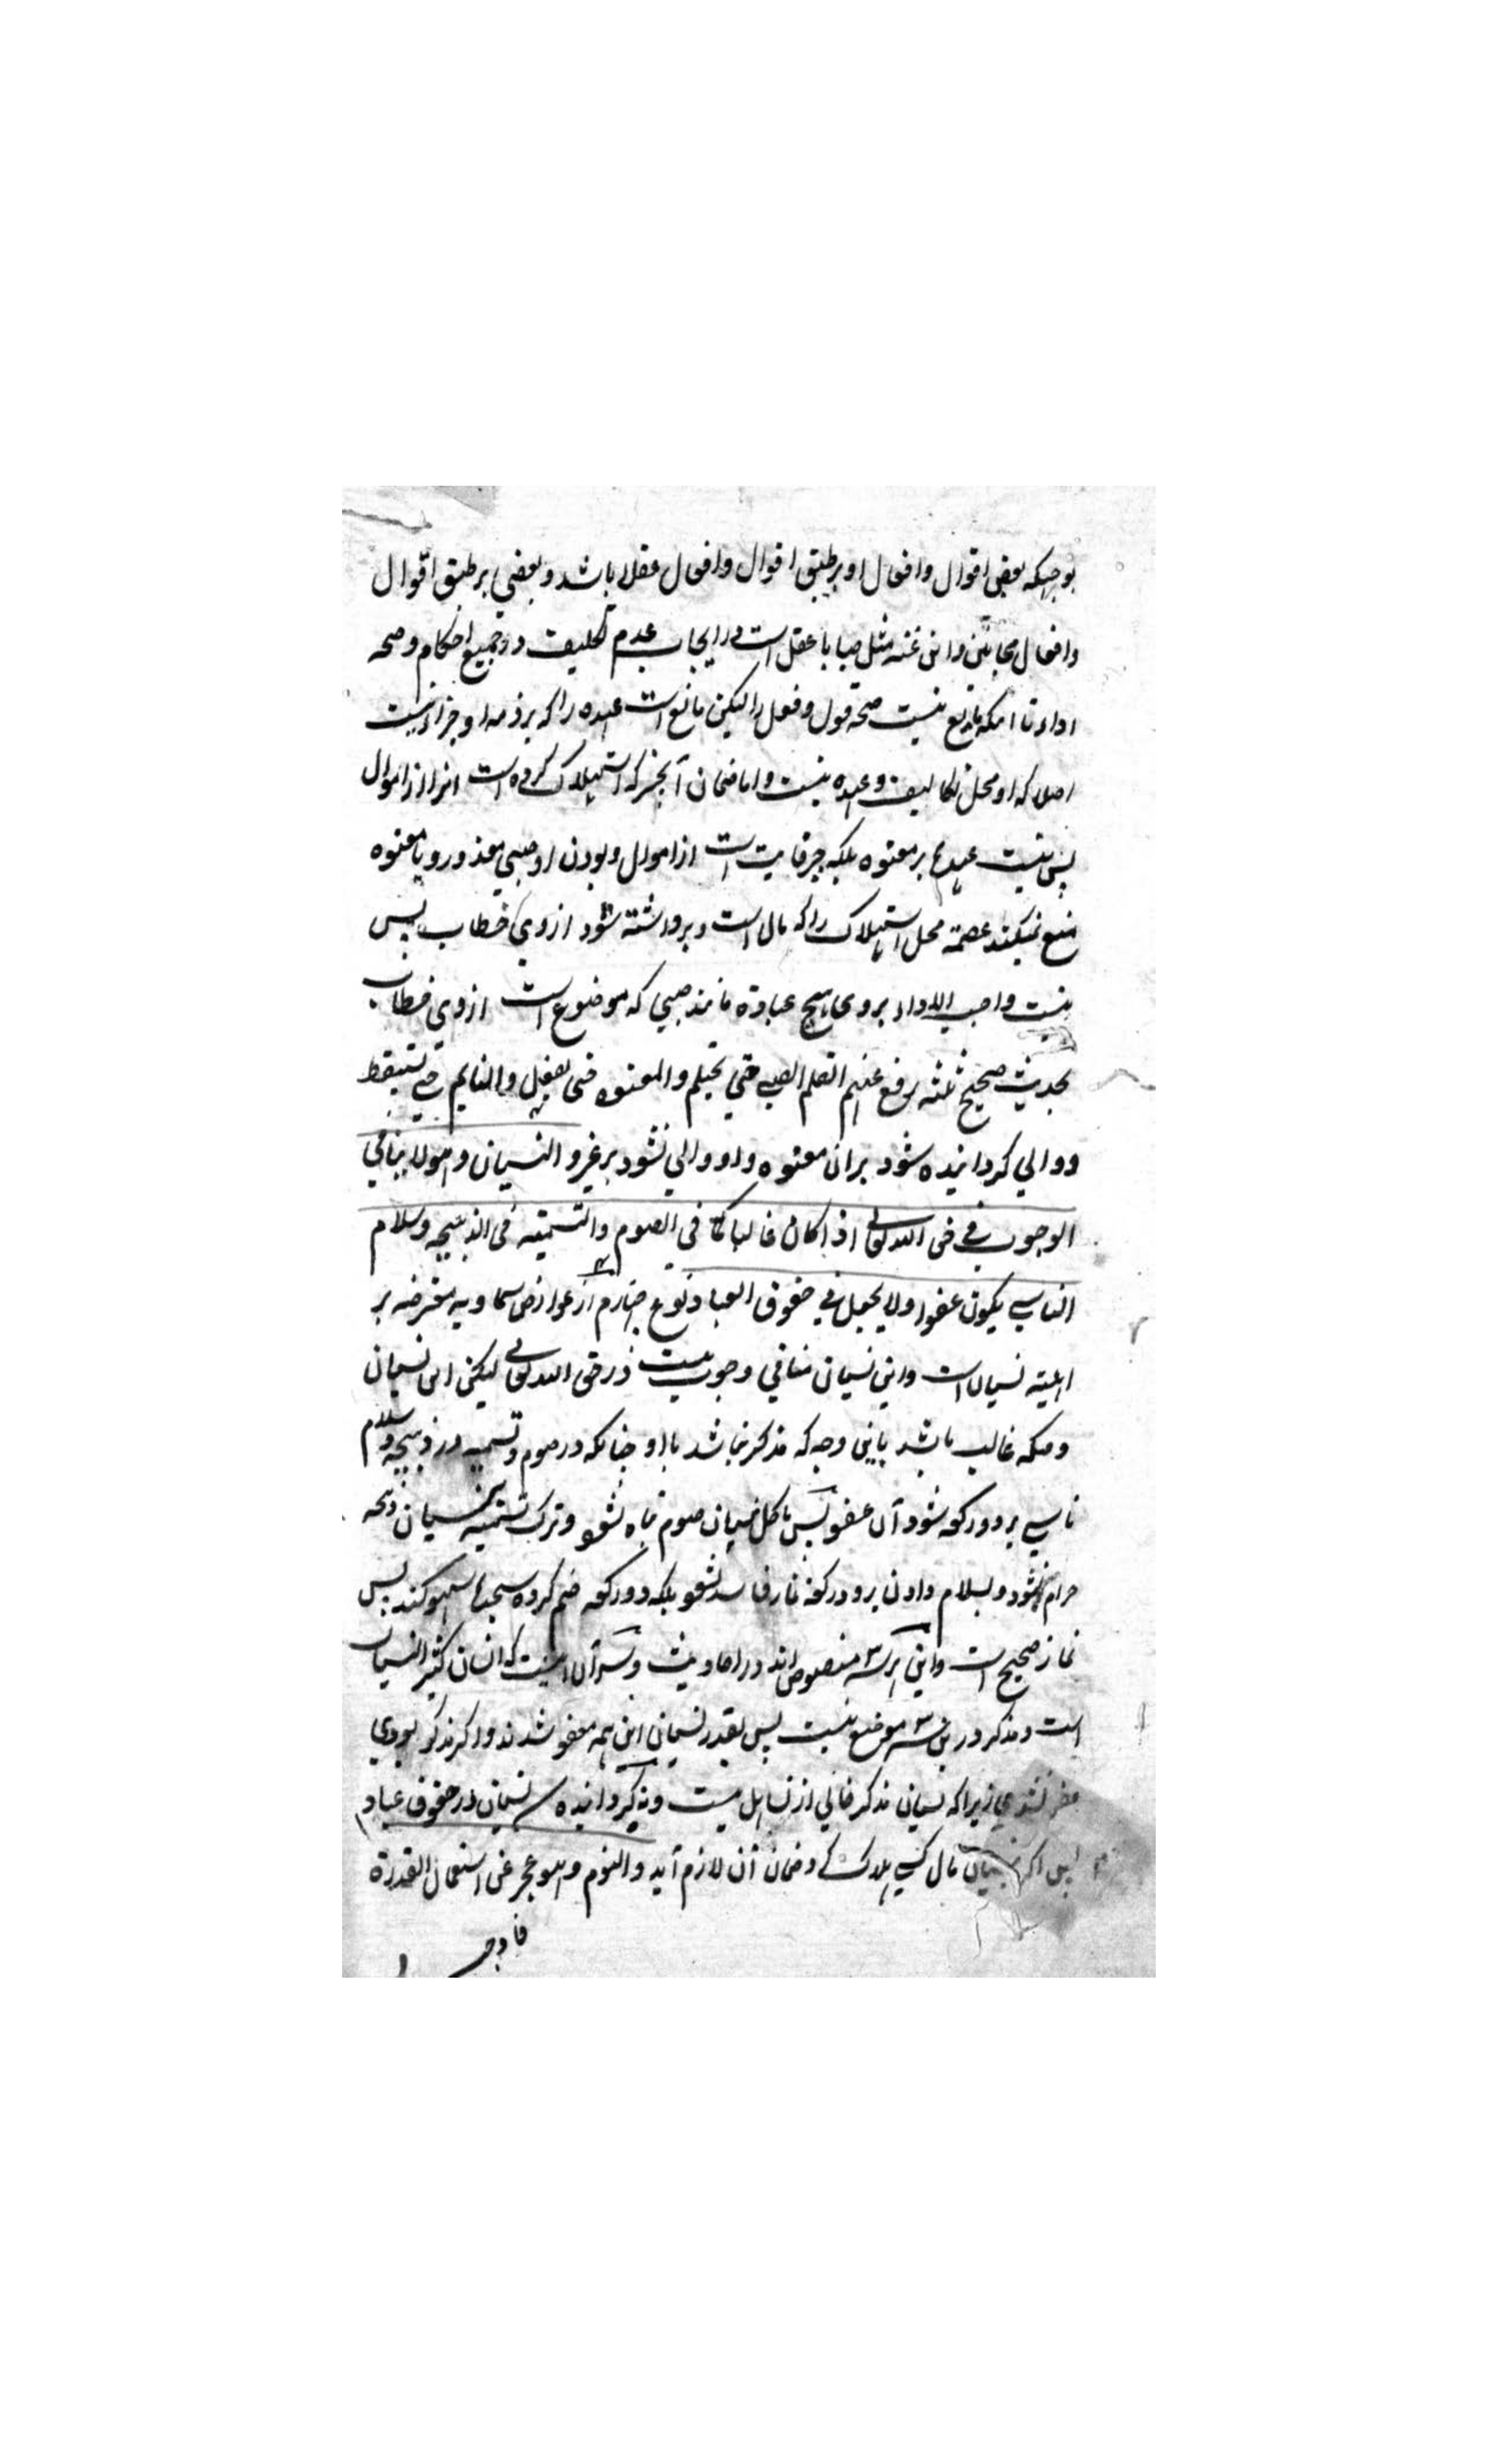 بوجهیکه بعضی اقوال و افعال او بر طبق اقوال و افعال عقلا باشد و بعضی بر طبق اقوال
و افعال مجانین و این عته مثل صبا با عقل است در ایجاب عدم تکلیف در جمیع احکام و صحه
اداء تا آنکه مانع نیست صحه قول و فعل را لیکن مانع است عهده را که بر ذمه او جزاء نیست
اصلا که او محل تکالیف و عهده نیست و اما ضمان آنچیز که استهلاک کرده است انرا از اموال
پس نیست عهده بر معتوه بلکه جبر فایت است از اموال و بودن او صبی معذور و یا معتوه
منع نمیکند عصمة محل استهلاک را که مال است و برداشته شود از وی خطاب پس
نیست واجب الاداء بر وی هیچ عبادة مانند صبی که موضوع است از وی خطاب
بحدیث صحیح ثلثه رفع عنهم القلم الصبی حتی یحتلم والمعتوه حتی یعقل والنایم حتی یستیقظ
و والی کردانیده شود بران معتوه و او والی نشود بر غیر و النسیان وهو لا ینافی
الوجوب فی حق الله تعالی اذا کان غالبا کما فی الصوم والتسمیة فی الذبیحه وسلام
الناسی یکون عفوا ولا یجعل فی حقوق العباد نوع چهارم از عوارض سماویه معترضه بر
اهلیته نسیان است و این نسیان منافی وجوب نیست در حق الله تعالی لیکن این نسیان
وقتیکه غالب باشد باین وجه که مذکر نباشد با او چنانکه در صوم و تسمیه در ذبیحه و سلام
ناسی بر دو رکعه شود آن عفو پس باکل نسیان صوم تباه نشود و ترک تسمیه بنسیان ذبیحه
حرام نمیشود و بسلام دادن بر دو رکعه نماز فاسد نشود بلکه دو رکعه ضم کرده سجده سهو کند پس
نماز صحیح است و این هر سه منصوص اند در احادیث و سر آن اینست که انسان کثیر النسیان
است و مذکر درین سه موضع نیست پس بقدر نسیان این همه معفو شدند و اکر مذکر بودی
عفو نشدی زیرا که نسیان مذکر خالی از تساهل نیست و نه کردانیده نسیان در حقوق عباد
پس اکر بنسیان مال کسی هلاک کرد ضمان آن لازم آید والنوم وهو عجز عن استعمال القدرة
فاوجب